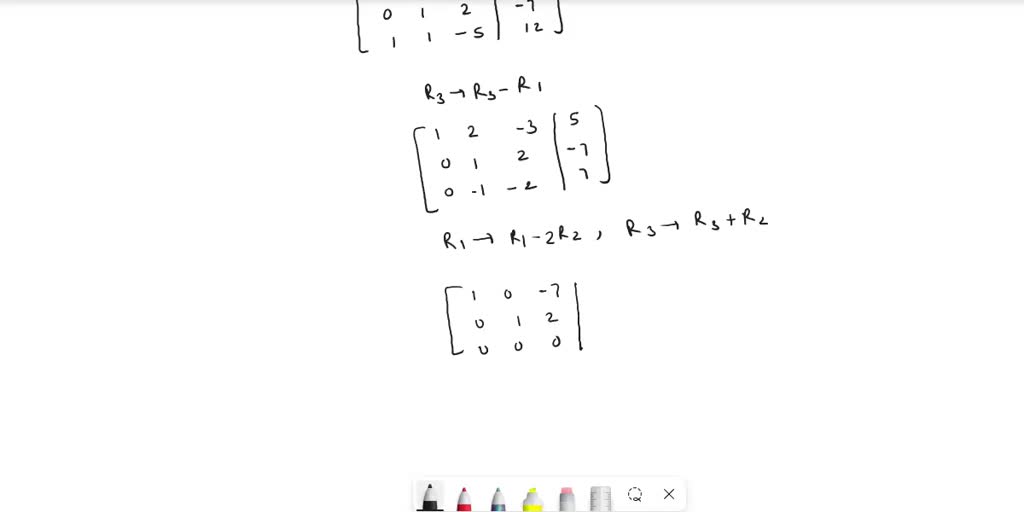 0 1 2 | -7
1 1 -5 | 12
R3 → R3 - R1
1 2 -3 | 5
0 1 2 | -7
0 -1 -2 | 7
R1 → R1 - 2R2 , R3 → R3 + R2
1 0 -7 |
0 1 2 |
0 0 0 |